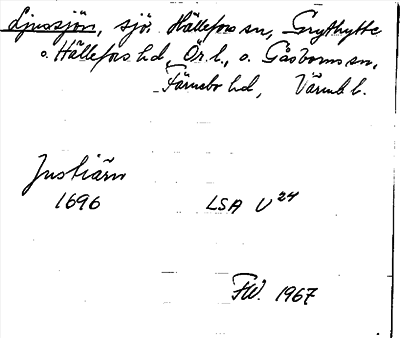 Ljussjön, sjö. Hällefors sn, Grythytte
o. Hällefors hd, Ör. l., o. Gåsborns sn,
Färnebo hd, Värml. l.
Justiärn
1696 LSA U²⁴
FW. 1967